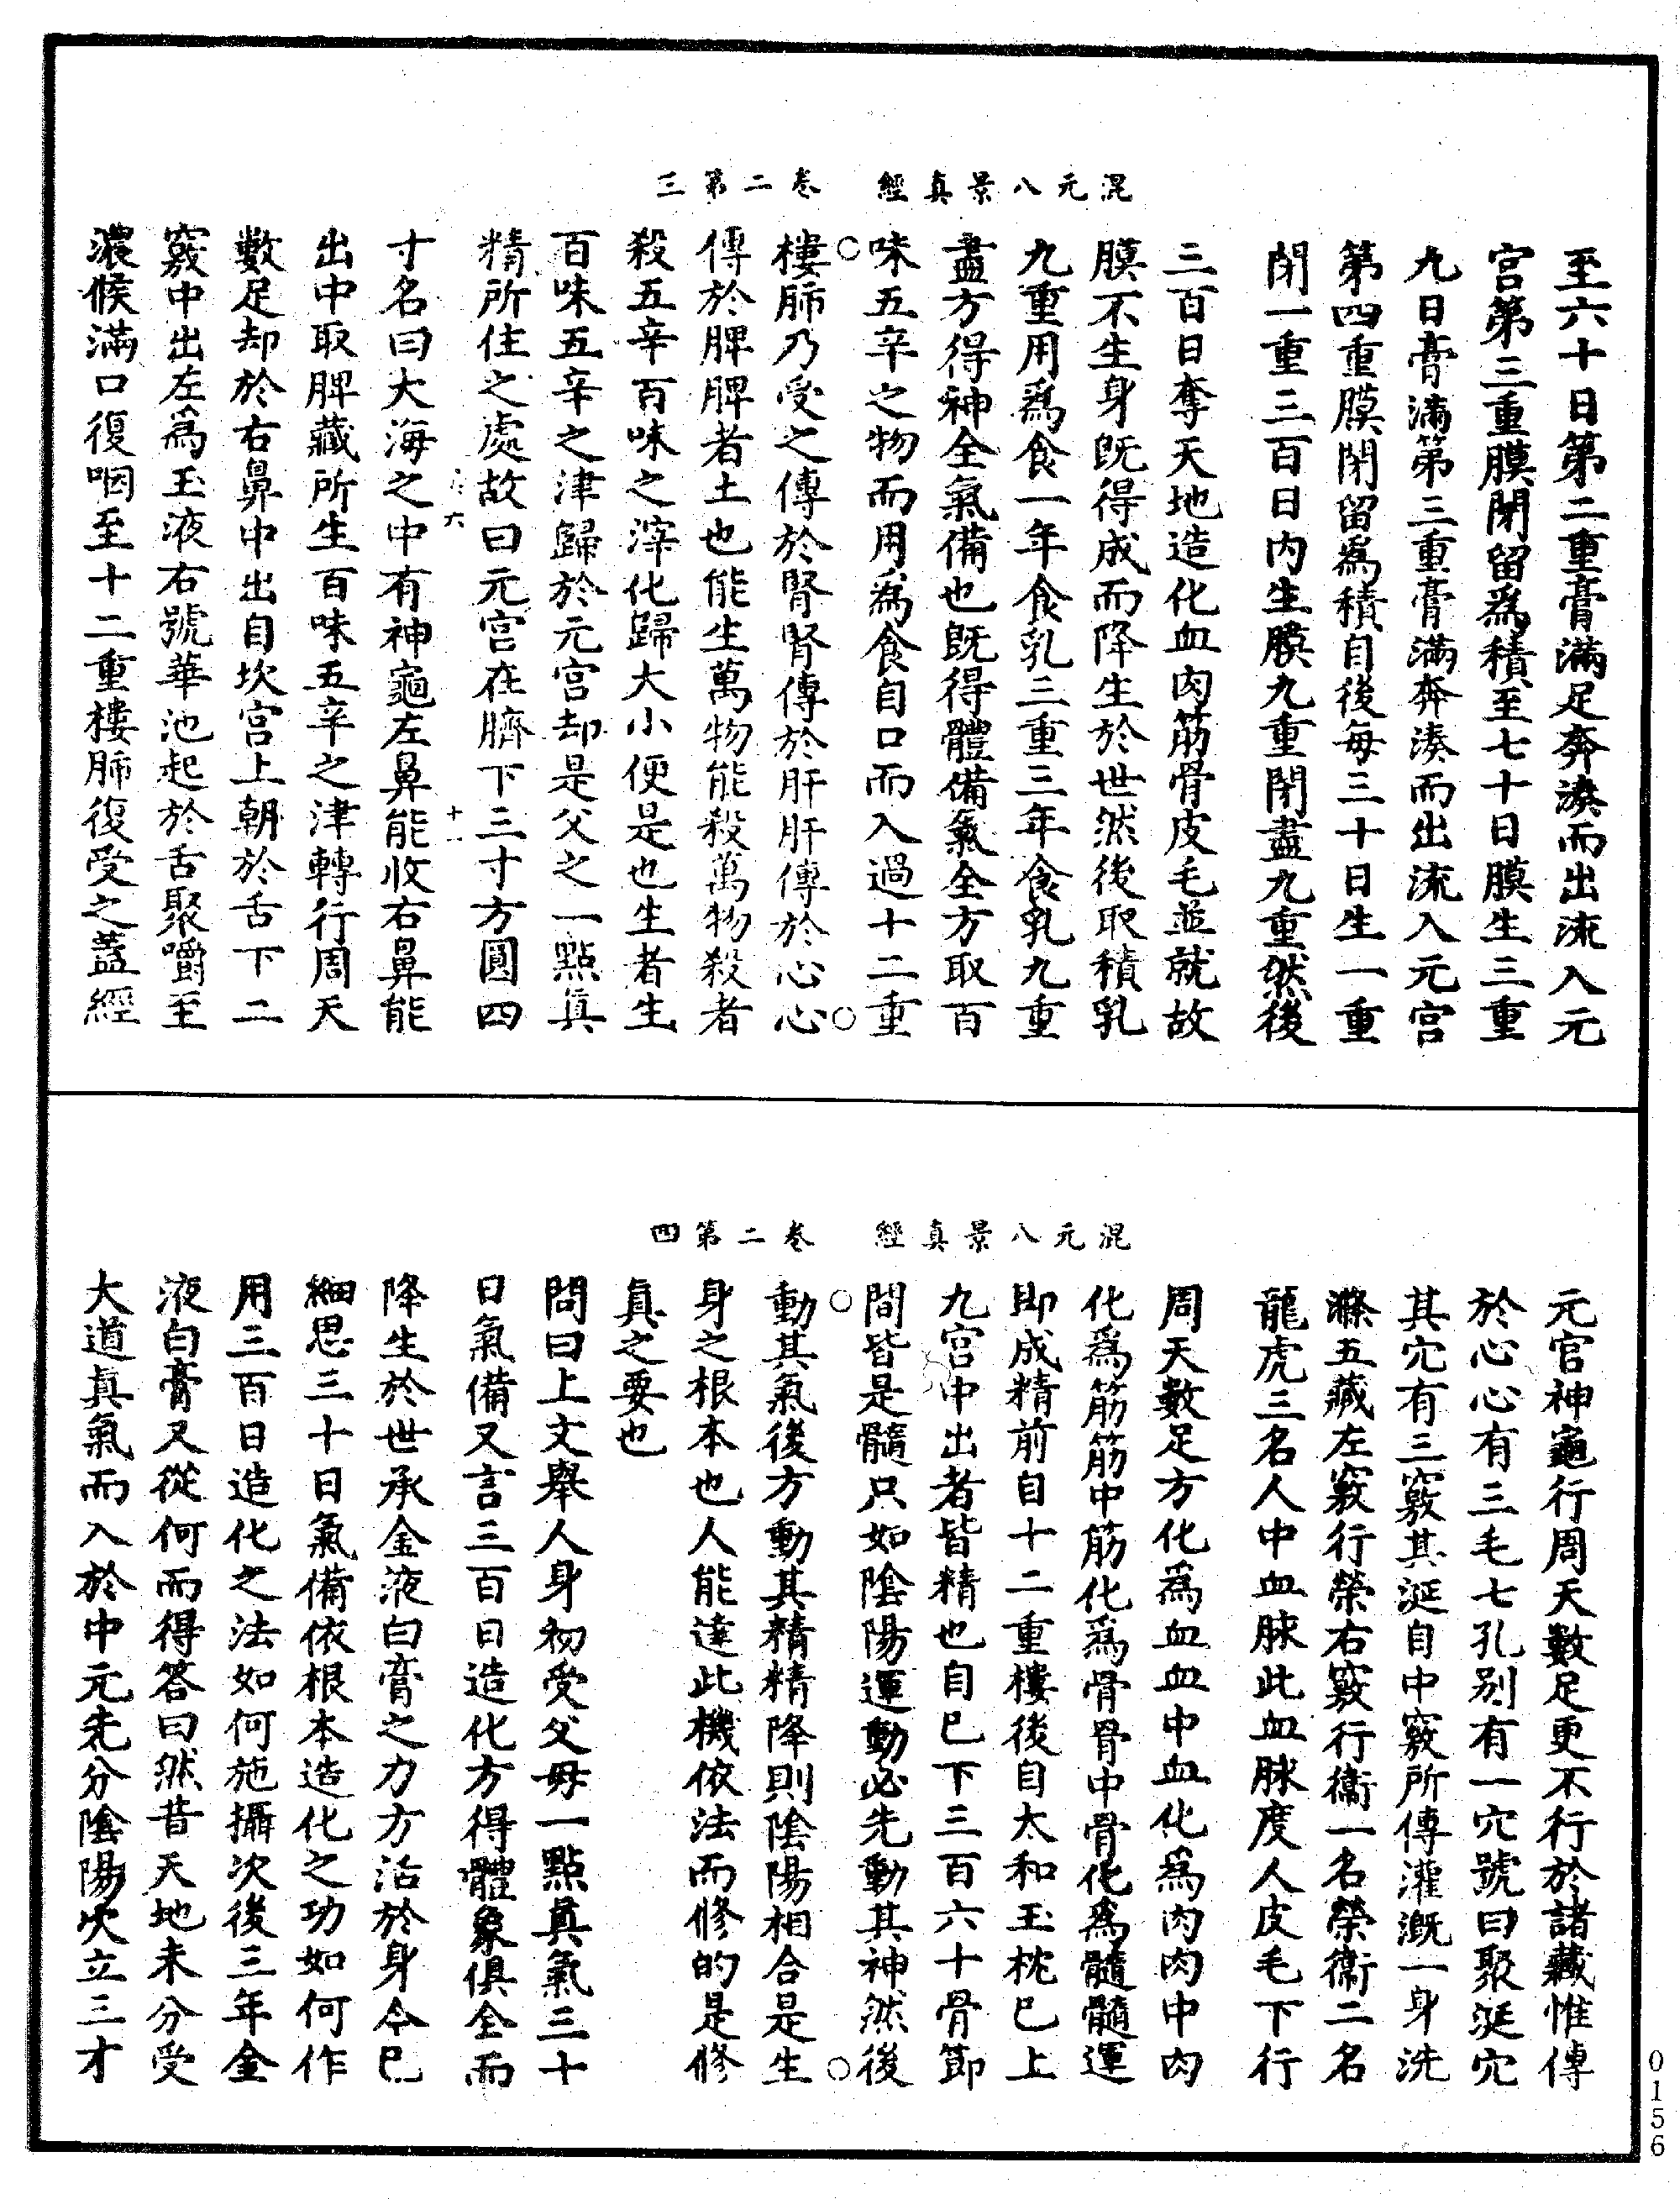 混元八景真經　卷二第三
至六十日第二重膏滿足奔湊而出流入元
宮第三重膜閉留爲積至七十日膜生三重
九日膏滿第三重膏滿奔湊而出流入元宮
第四重膜閉留爲積自後每三十日生一重
閉一重三百日內生膜九重閉盡九重然後
三百日奪天地造化血肉筋骨皮毛並就故
膜不生身旣得成而降生於世然後取積乳
九重用爲食一年食乳三重三年食乳九重
盡方得神全氣備也旣得體備氣全方取百
味五辛之物而用爲食自口而入過十二重
樓肺乃受之傳於腎腎傳於肝肝傳於心心
傳於脾脾者土也能生萬物能殺萬物殺者
殺五辛百味之滓化歸大小便是也生者生
百味五辛之津歸於元宮却是父之一點眞
精所住之處故曰元宮在臍下三寸方圓四
六　十一
寸名曰大海之中有神龜左鼻能收右鼻能
出中取脾藏所生百味五辛之津轉行周天
數足却於右鼻中出自坎宮上朝於舌下二
竅中出左爲玉液右號華池起於舌聚嚼至
濃候滿口復咽至十二重樓肺復受之蓋經
混元八景真經　卷二第四
元官神龜行周天數足更不行於諸藏惟傳
於心心有三毛七孔别有一穴號曰聚涎穴
其穴有三竅其涎自中竅所傳灌溉一身洗
滌五藏左竅行榮右竅行衞一名榮衞二名
龍虎三名人中血脉此血脉度人皮毛下行
周天數足方化爲血血中血化爲肉肉中肉
化爲筋筋中筋化爲骨骨中骨化爲髓髓運
即成精前自十二重樓後自太和玉枕已上
九宮中出者皆精也自已下三百六十骨節
間皆是髓只如陰陽運動必先動其神然後
動其氣後方動其精精降則陰陽相合是生
身之根本也人能達此機依法而修的是修
眞之要也
問曰上文舉人身初受父母一點眞氣三十
日氣備又言三百日造化方得體象俱全而
降生於世承金液白膏之力方活於身今已
細思三十日氣備依根本造化之功如何作
用三百日造化之法如何施攝次後三年金
液白膏又從何而得答曰然昔天地未分受
大道眞氣而入於中元先分陰陽次立三才
0156